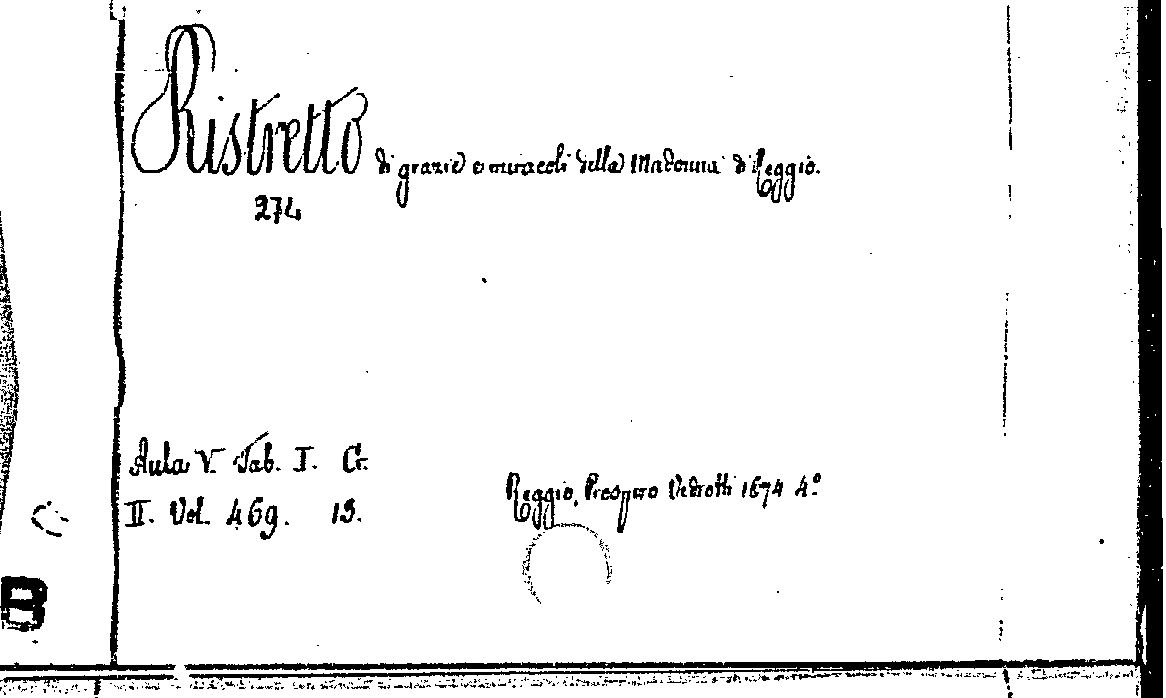 Ristretto di grazie e miracoli della Madonna di Reggio.
274
Aula V. Tab. I. Cr.
II. Vol. 469. 13.
Reggio, Prospero Vedrotti 1674 4º
B